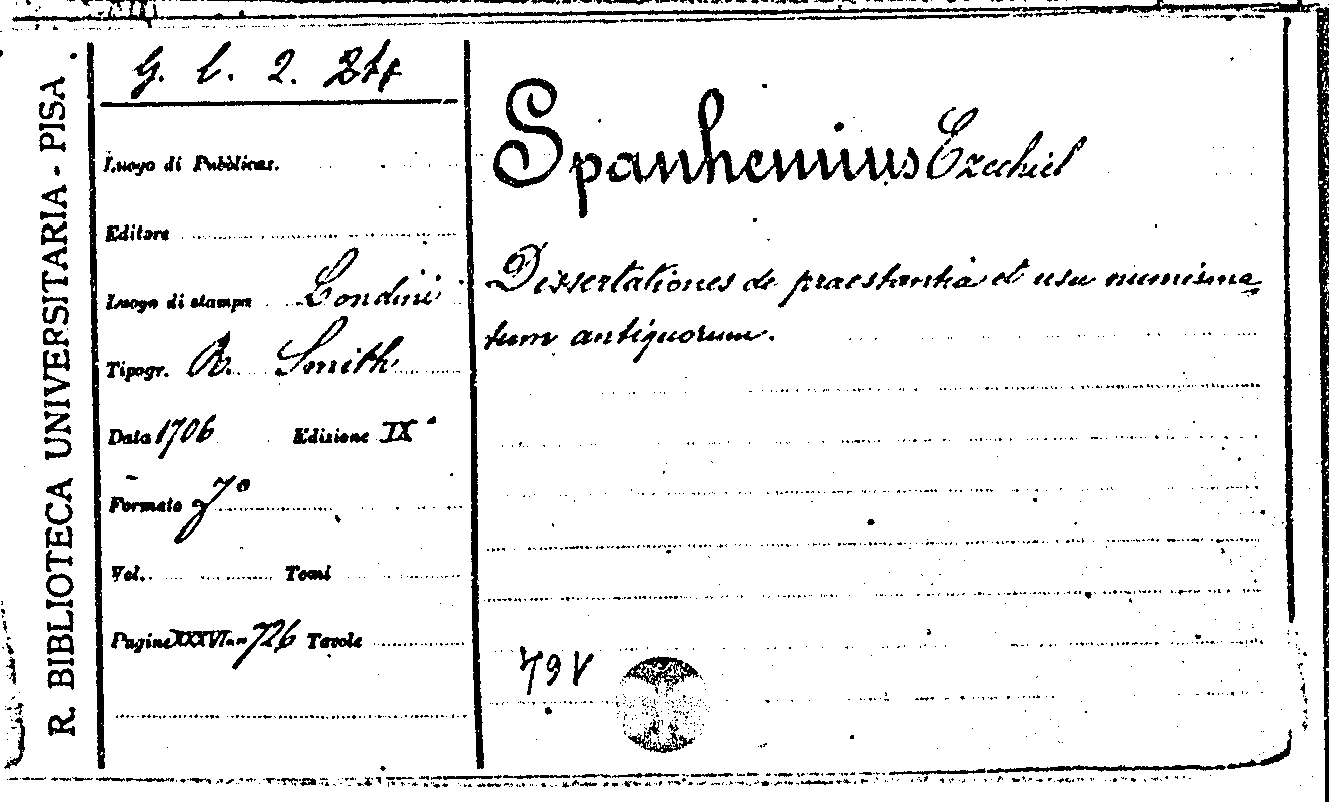 R. BIBLIOTECA UNIVERSITARIA - PISA
G. l. 2.
Spanhemius Ezechiel
Luogo di Pubblicaz.
Editore
Luogo di stampa Londini
Dissertationes de praestantia et usu numisma-
tum antiquorum.
Tipogr. R. Smith
Data 1706 Edizione IXª
Formato
Vol. Tomi
Pagine XXXVI 726 Tavole